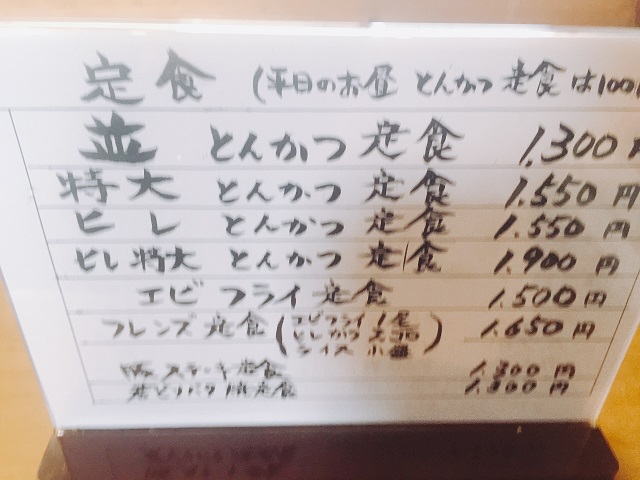 定食 (平日のお昼 とんかつ定食は100
並 とんかつ 定食 1.300
特大 とんかつ 定食 1.550円
ヒレ とんかつ 定食 1.550円
ヒレ特大 とんかつ 定食 1.900円
エビフライ定食 1.500円
フレンズ定食 1.650円
(エビフライ1尾
ヒレかつ
ライス小盛)
豚ステーキ定食 1.300円
定食 1.300円